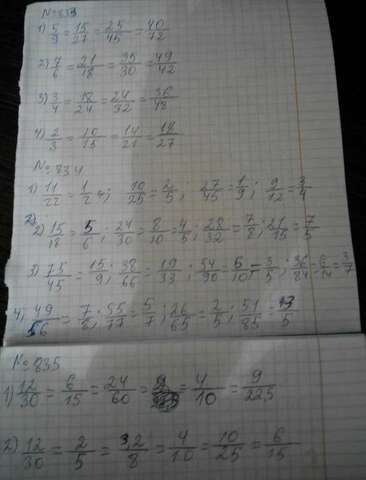 №833
1) 5/9 = 15/27 = 25/45 = 40/72
2) 7/6 = 21/18 = 35/30 = 49/42
3) 3/4 = 18/24 = 24/32 = 36/48
4) 2/3 = 10/15 = 14/21 = 18/27
№834
1) 11/22 = 1/2; 10/25 = 2/5, 27/45 = 1/9; 9/12 = 3/4
2) 15/18 = 5/6; 24/30 = 8/10 = 4/5; 28/32 = 7/8; 21/15 = 7/5
3) 75/45 = 15/9; 38/66 = 19/33; 54/90 = 6/10 = 3/5; 36/84 = 3/7
4) 49/56 = 7/8; 55/77 = 5/7; 26/65 = 2/5; 51/85 = 3/5
№835
1) 12/30 = 6/15 = 24/60 = 4/10 = 9/225
2) 12/30 = 2/5 = 3,2/8 = 4/10 = 10/25 = 6/15